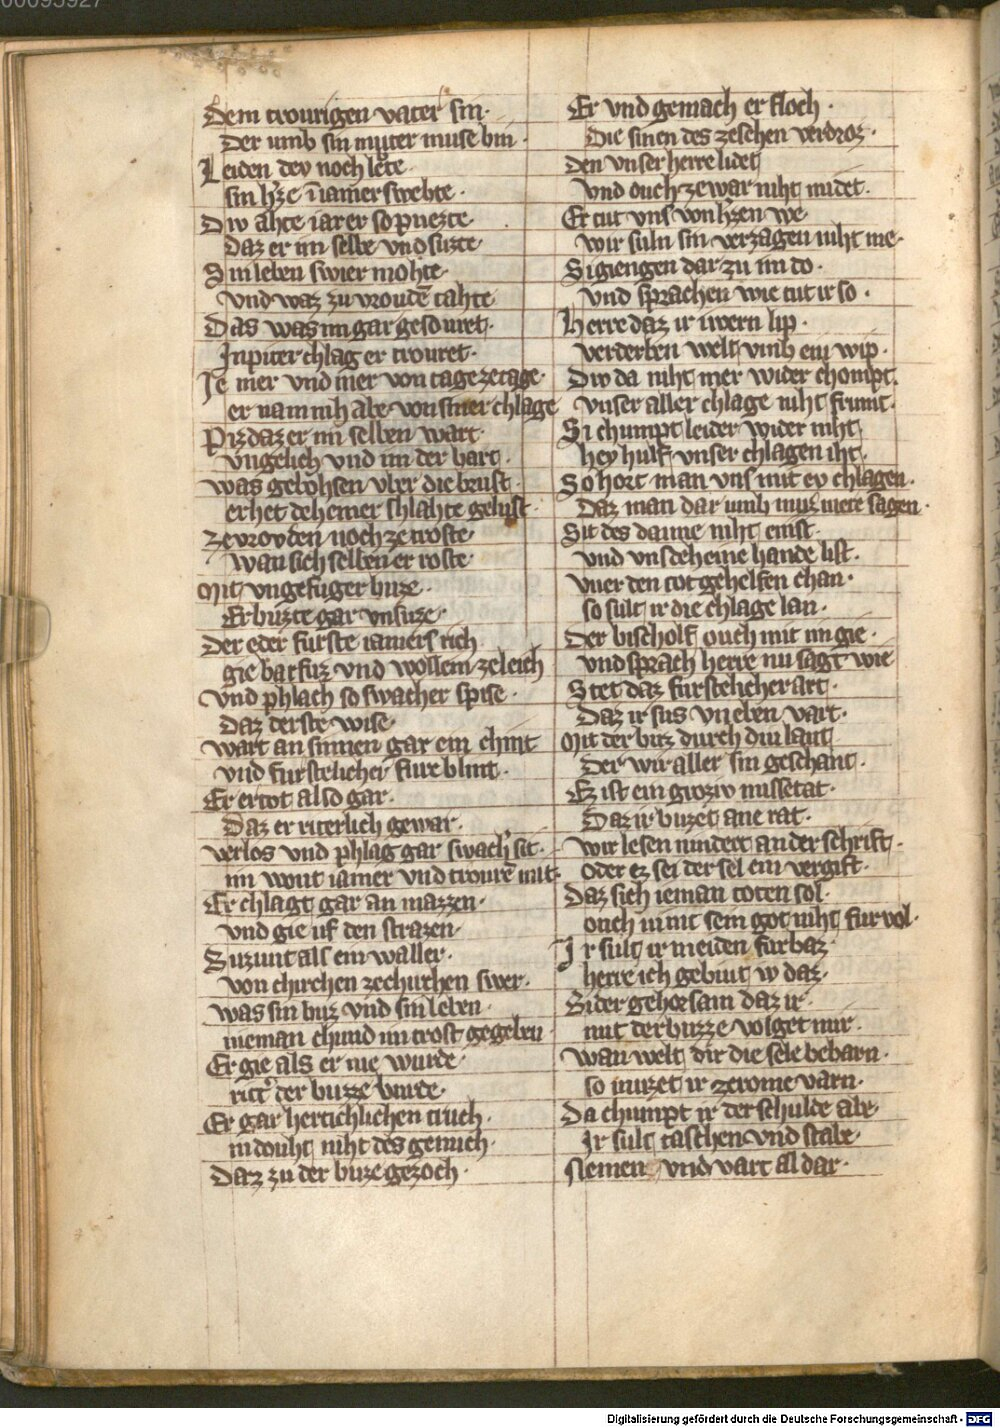 00095927
Dem trourigen vater sin·
Der umb sin muter muse bin·
Leiden dev noch lete
sin hˀze īiamer swebte·
Div ahte iar er so puezte·
Daz er im selbe vnd suzte
Sin leben swier mohte·
Vnd waz zu vroudē tahte
Das was im gar gesouret·
In piter chlag er trouret·
Ie mer vnd mer von tage zetage·
er nam nih abe von siner chlage
Piz daz er im selben wart
vngelich vnd im der bart·
was gewohsen vber die brust
er het deheiner slahte gelust·
zevrovden noch ze troste
wan sich selben er roste·
Mit vngefuger buze·
Er buzte gar vnsuze·
Der eder furste iamers rich
gie barfuz vnd wollein zeleich
vnd phlach so swacher spise·
Daz der ste wise·
wart an sinnen gar ein chint
vnd furstelicher fure blint·
Er ertot also gar·
Daz er riterlich gewar·
verlos vnd phlag gar swachˀ sit·
im wont iamer vnd trourē mit·
Er chlagt gar an mazzen·
vnd gie uf den strazen·
Suzunt als ein waller·
von chirchen zechirchen swer·
was sin buz vnd sin leben·
nieman chund im trost gegeben
Er gie als er nie wurde·
rittˀ der buzze burde·
Er gar hertichlichen truch·
in douht niht des genuch·
Daz zu der buze gezoch·
Er vnd gemach er floch·
Die sinen des zeschen verdroz·
Den vnser herre lidet
vnd ouch zewar niht midet·
Er tut vns von hˀzen we
wir suln sin verzagen niht me·
Si giengen dar zu im do·
vnd sprachen wie tut ir so·
Herre daz ir iwern lip·
verderben welt vmb ein wip·
Div da niht mer wider chompt·
vnser aller chlage niht frumt·
Si chumpt leider wider niht
hey hulf vnser chlagen iht·
So hort man vns mit ev chlagen·
Daz man dar umb muz mere sagen·
Sit des danne niht enist·
vnd vns deheine hande list·
vner den tot gehelfen chan·
so sult ir die chlage lan·
Der bischolf ouch mit im gie·
vnd sprach herre nu sagt wie
Stet daz furstelicher art·
Daz ir sus vneben vart·
Mit der buz durch diu lant
Der wir aller sin geschant·
Ez ist ein groziv missetat·
Daz ir buzet ane rat·
wir lesen nindert an der schrift·
oder ez sei der sel ein vergift·
Daz sich ieman toten sol·
ouch nimt sein got niht fur vol·
Ir sult ir meiden furbaz·
herre ich gebiut iv daz·
Sider gehorsam daz ir·
mit der buzze volget mir·
wan welt dir die sele behern·
so muzet ir zerome varn·
Da chumpt ir der schulde abe·
Ir sult taschen vnd stabe·
Nemen vnd vart al dar·
Digitalisierung gefördert durch die Deutsche Forschungsgemeinschaft - DFG